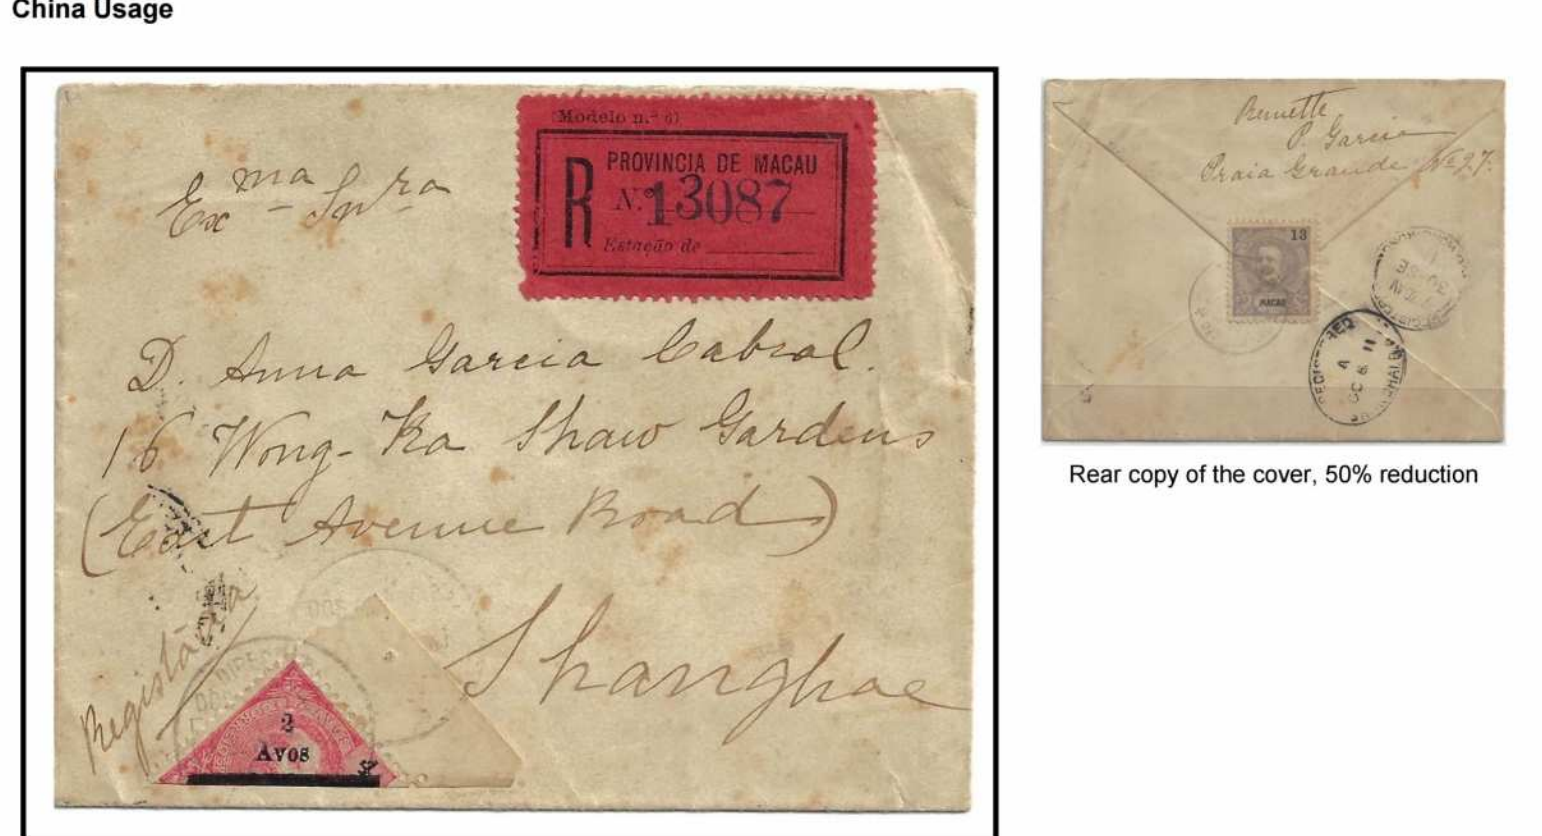 China Usage
(Modelo n.º 6)
R PROVINCIA DE MACAU
N.º 13087
Estação de
Exma Snra
D. Anna Garcia Cabral.
16 Wong-Ka Shaw Gardens
(East Avenue Road)
Shanghae
Registada
2
Avos
Remette
P. Garcia
Praia Grande Nº 27.
13
MACAU
REGISTERED
SHANGHAI
Rear copy of the cover, 50% reduction